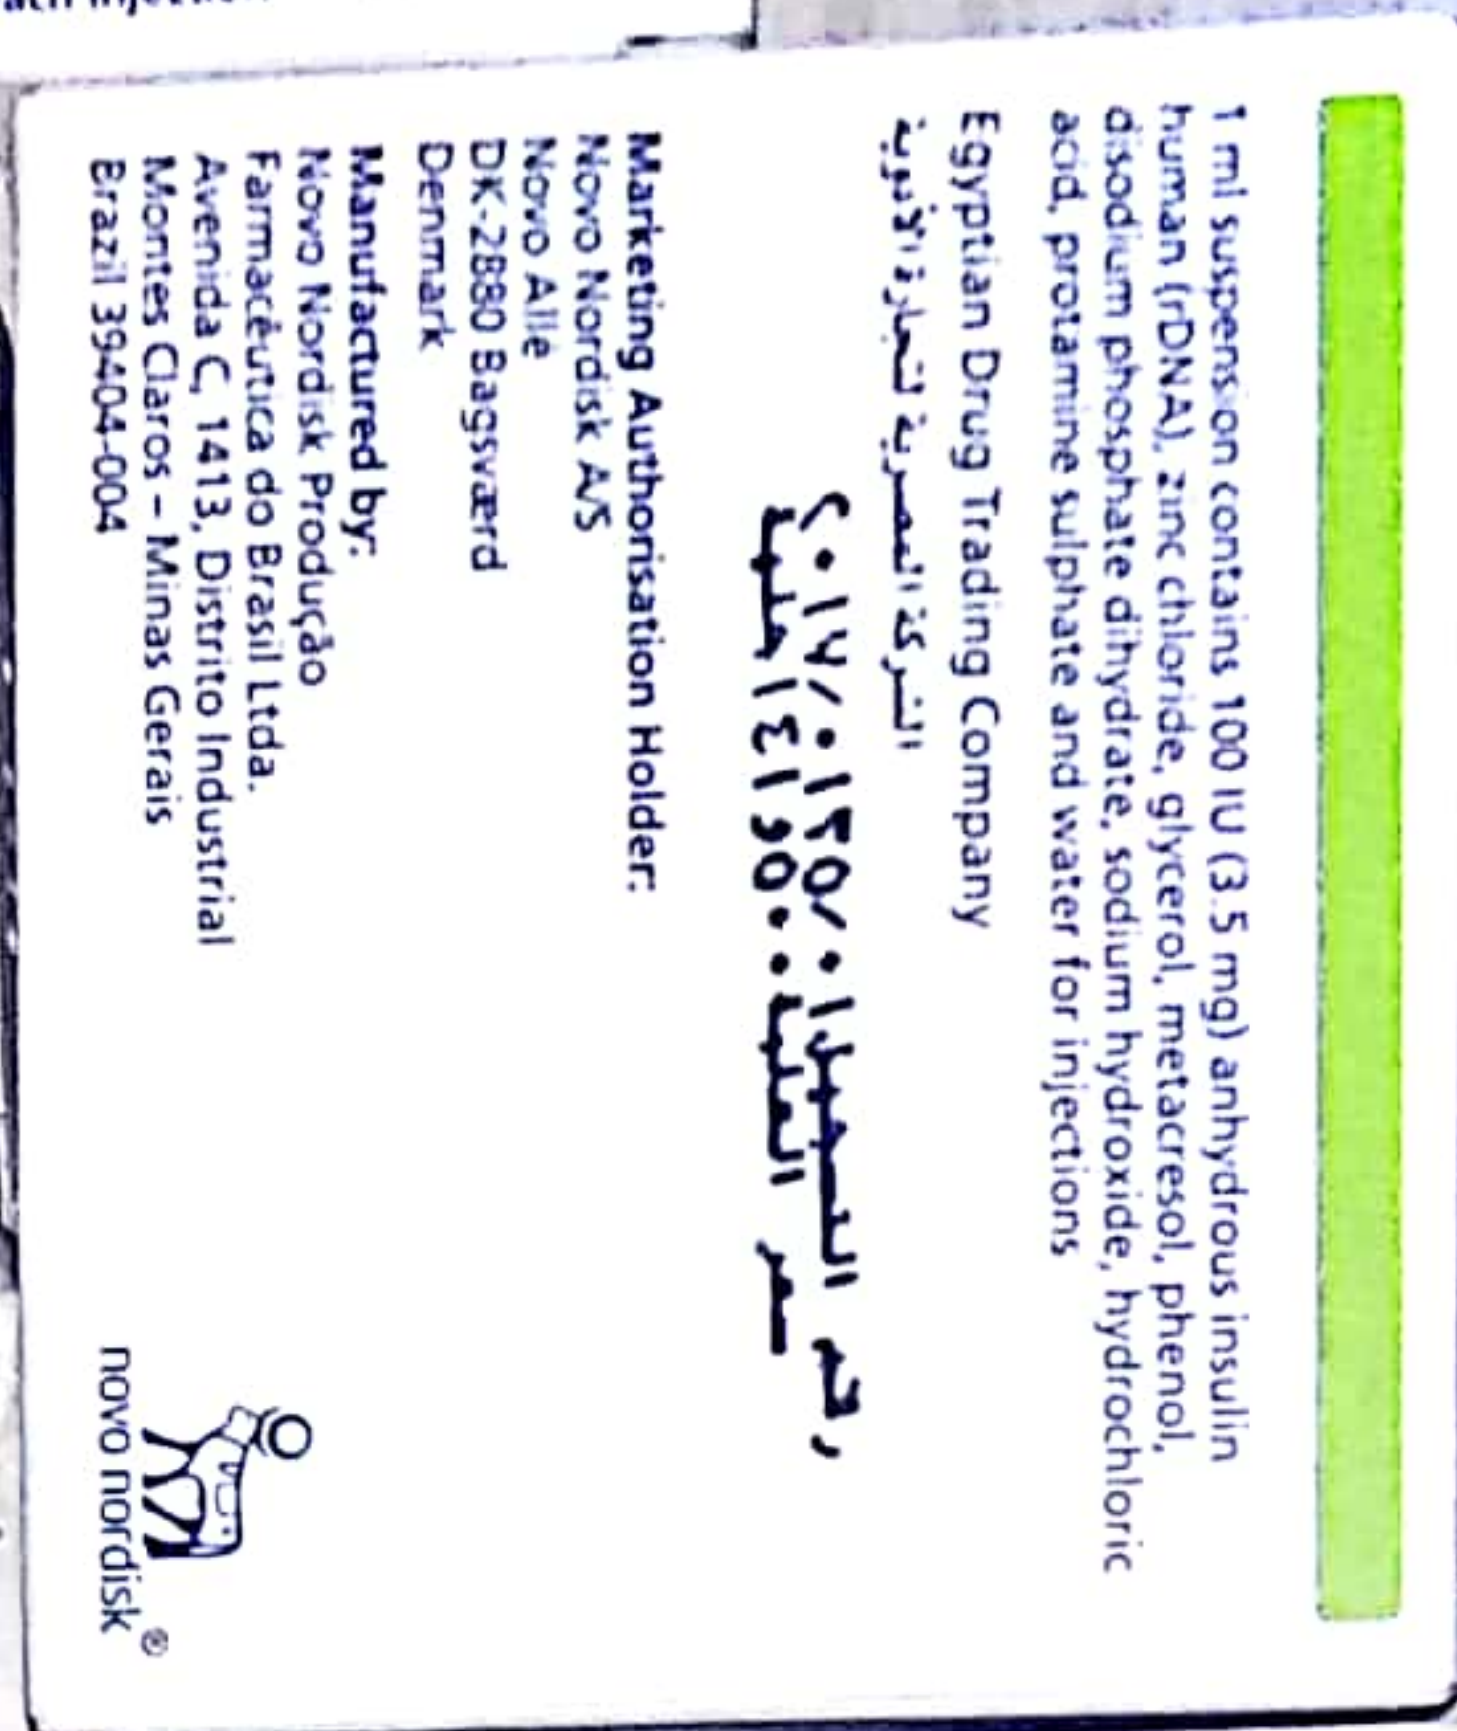 1 ml suspension contains 100 IU (3.5 mg) anhydrous insulin
human (rDNA), zinc chloride, glycerol, metacresol, phenol,
disodium phosphate dihydrate, sodium hydroxide, hydrochloric
acid, protamine sulphate and water for injections
Egyptian Drug Trading Company
الشركة المصرية لتجارة الأدوية
رقم التسجيل
سعر العلبة
Marketing Authorisation Holder:
Novo Nordisk A/S
Novo Allé
DK-2880 Bagsværd
Denmark
Manufactured by:
Novo Nordisk Produção
Farmacêutica do Brasil Ltda.
Avenida C, 1413, Distrito Industrial
Montes Claros – Minas Gerais
Brazil 39404-004
novo nordisk®